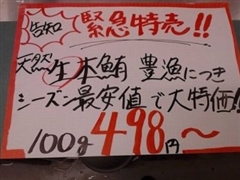 告知 緊急特売!!
天然 生本鮪 豊漁につき
シーズン最安値で大特価!!
100g 498円～